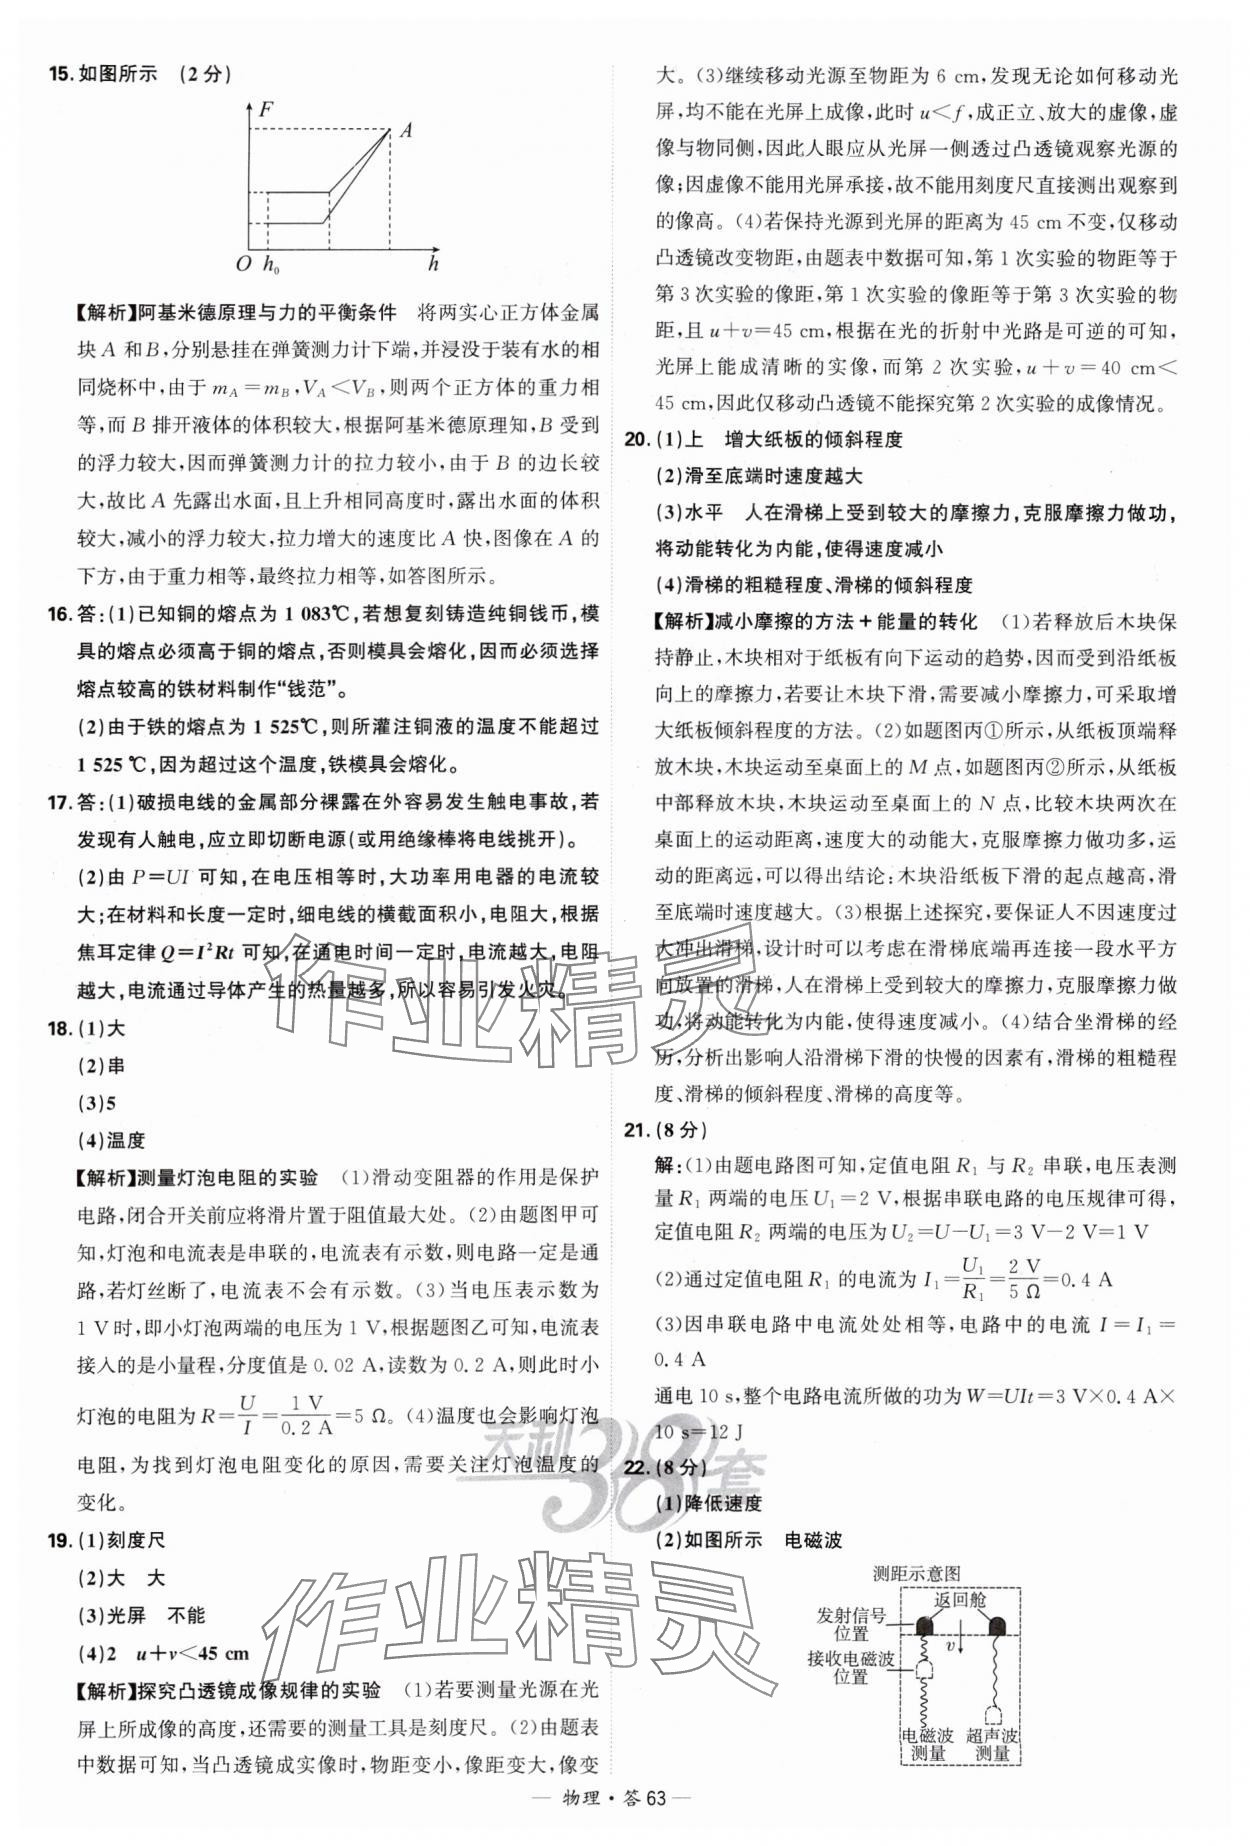 15. 如图所示 (2分)
F
A
O h₀ h
【解析】阿基米德原理与力的平衡条件 将两实心正方体金属
块 A 和 B,分别悬挂在弹簧测力计下端,并浸没于装有水的相
同烧杯中,由于 m_A=m_B,V_A<V_B,则两个正方体的重力相
等,而 B 排开液体的体积较大,根据阿基米德原理知,B 受到
的浮力较大,因而弹簧测力计的拉力较小,由于 B 的边长较
大,故比 A 先露出水面,且上升相同高度时,露出水面的体积
较大,减小的浮力较大,拉力增大的速度比 A 快,图像在 A 的
下方,由于重力相等,最终拉力相等,如答图所示。
16. 答:(1)已知铜的熔点为 1 083℃,若想复刻铸造纯铜钱币,模
具的熔点必须高于铜的熔点,否则模具会熔化,因而必须选择
熔点较高的铁材料制作“钱范”。
(2)由于铁的熔点为 1 525℃,则所灌注铜液的温度不能超过
1 525 ℃,因为超过这个温度,铁模具会熔化。
17. 答:(1)破损电线的金属部分裸露在外容易发生触电事故,若
发现有人触电,应立即切断电源(或用绝缘棒将电线挑开)。
(2)由 P=UI 可知,在电压相等时,大功率用电器的电流较
大;在材料和长度一定时,细电线的横截面积小,电阻大,根据
焦耳定律 Q=I²Rt 可知,在通电时间一定时,电流越大,电阻
越大,电流通过导体产生的热量越多,所以容易引发火灾。
18. (1)大
(2)串
(3)5
(4)温度
【解析】测量灯泡电阻的实验 (1)滑动变阻器的作用是保护
电路,闭合开关前应将滑片置于阻值最大处。(2)由题图甲可
知,灯泡和电流表是串联的,电流表有示数,则电路一定是通
路,若灯丝断了,电流表不会有示数。(3)当电压表示数为
1 V时,即小灯泡两端的电压为 1 V,根据题图乙可知,电流表
接入的是小量程,分度值是 0.02 A,读数为 0.2 A,则此时小
灯泡的电阻为 R=U/I=1 V/0.2 A=5 Ω。(4)温度也会影响灯泡
电阻,为找到灯泡电阻变化的原因,需要关注灯泡温度的
变化。
19. (1)刻度尺
(2)大 大
(3)光屏 不能
(4)2 u+v<45 cm
【解析】探究凸透镜成像规律的实验 (1)若要测量光源在光
屏上所成像的高度,还需要的测量工具是刻度尺。(2)由题表
中数据可知,当凸透镜成实像时,物距变小,像距变大,像变
大。(3)继续移动光源至物距为 6 cm,发现无论如何移动光
屏,均不能在光屏上成像,此时 u<f,成正立、放大的虚像,虚
像与物同侧,因此人眼应从光屏一侧透过凸透镜观察光源的
像;因虚像不能用光屏承接,故不能用刻度尺直接测出观察到
的像高。(4)若保持光源到光屏的距离为 45 cm 不变,仅移动
凸透镜改变物距,由题表中数据可知,第 1 次实验的物距等于
第 3 次实验的像距,第 1 次实验的像距等于第 3 次实验的物
距,且 u+v=45 cm,根据在光的折射中光路是可逆的可知,
光屏上能成清晰的实像,而第 2 次实验,u+v=40 cm<
45 cm,因此仅移动凸透镜不能探究第 2 次实验的成像情况。
20. (1)上 增大纸板的倾斜程度
(2)滑至底端时速度越大
(3)水平 人在滑梯上受到较大的摩擦力,克服摩擦力做功,
将动能转化为内能,使得速度减小
(4)滑梯的粗糙程度、滑梯的倾斜程度
【解析】减小摩擦的方法+能量的转化 (1)若释放后木块保
持静止,木块相对于纸板有向下运动的趋势,因而受到沿纸板
向上的摩擦力,若要让木块下滑,需要减小摩擦力,可采取增
大纸板倾斜程度的方法。(2)如题图丙①所示,从纸板顶端释
放木块,木块运动至桌面上的 M 点,如题图丙②所示,从纸板
中部释放木块,木块运动至桌面上的 N 点,比较木块两次在
桌面上的运动距离,速度大的动能大,克服摩擦力做功多,运
动的距离远,可以得出结论:木块沿纸板下滑的起点越高,滑
至底端时速度越大。(3)根据上述探究,要保证人不因速度过
大冲出滑梯,设计时可以考虑在滑梯底端再连接一段水平方
向放置的滑梯,人在滑梯上受到较大的摩擦力,克服摩擦力做
功,将动能转化为内能,使得速度减小。(4)结合坐滑梯的经
历,分析出影响人沿滑梯下滑的快慢的因素有,滑梯的粗糙程
度、滑梯的倾斜程度、滑梯的高度等。
21. (8分)
解:(1)由题电路图可知,定值电阻 R₁ 与 R₂ 串联,电压表测
量 R₁ 两端的电压 U₁=2 V,根据串联电路的电压规律可得,
定值电阻 R₂ 两端的电压为 U₂=U−U₁=3 V−2 V=1 V
(2)通过定值电阻 R₁ 的电流为 I₁=U₁/R₁=2 V/5 Ω=0.4 A
(3)因串联电路中电流处处相等,电路中的电流 I=I₁=
0.4 A
通电 10 s,整个电路电流所做的功为 W=UIt=3 V×0.4 A×
10 s=12 J
22. (8分)
(1)降低速度
(2)如图所示 电磁波
测距示意图
返回舱
发射信号
位置
v
接收电磁波
位置
电磁波 超声波
测量 测量
作业精灵
天利38套
作业精灵
— 物理·答 63 —